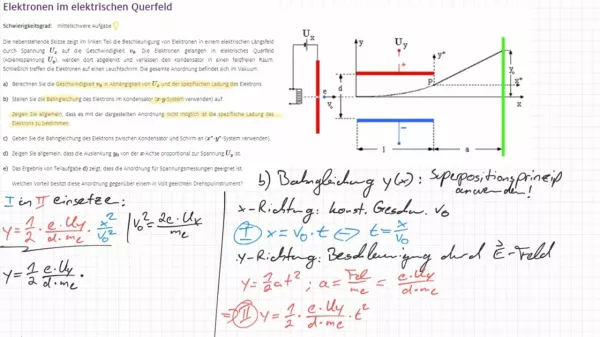 Elektronen im elektrischen Querfeld
Schwierigkeitsgrad: mittelschwere Aufgabe
Die nebenstehende Skizze zeigt im linken Teil die Beschleunigung von Elektronen in einem elektrischen Längsfeld
durch Spannung Uₓ auf die Geschwindigkeit v₀. Die Elektronen gelangen in elektrisches Querfeld
(Ablenkspannung Uᵧ), werden dort abgelenkt und verlassen den Kondensator in einen feldfreien Raum.
Schließlich treffen die Elektronen auf einen Leuchtschirm. Die gesamte Anordnung befindet sich im Vakuum.
a) Berechnen Sie die Geschwindigkeit v₀ in Abhängigkeit von Uₓ und der spezifischen Ladung des Elektrons.
b) Stellen Sie die Bahngleichung des Elektrons im Kondensator (x-y-System verwenden) auf.
Zeigen Sie allgemein, dass es mit der dargestellten Anordnung nicht möglich ist die spezifische Ladung des
Elektrons zu bestimmen.
c) Geben Sie die Bahngleichung des Elektrons zwischen Kondensator und Schirm an (x*-y*-System verwenden).
d) Zeigen Sie allgemein, dass die Auslenkung yₐ von der x-Achse proportional zur Spannung Uᵧ ist.
e) Das Ergebnis von Teilaufgabe d) zeigt, dass die Anordnung für Spannungsmessungen geeignet ist.
Welchen Vorteil besitzt diese Anordnung gegenüber einem Drehspulinstrument?
Uₓ
e
v₀
y
Uᵧ
+
d
-
l
p
y*
x*
x
a
I in II einsetze:
y = 1/2 · e·Uy/d·me · x²/v₀² | v₀² = 2e·Ux/me
y = 1/2 e·Uy/d·me ·
b) Bahngleichung y(x): Superpositionsprincip
anwenden!
x-Richtung: konst. Geschw. v₀
I x = v₀·t <=> t = x/v₀
y-Richtung: Beschleunigung durch E-Feld
y = 1/2 at² ; a = Fel/me = e·Uy/d·me
=> II y = 1/2 · e·Uy/d·me · t²